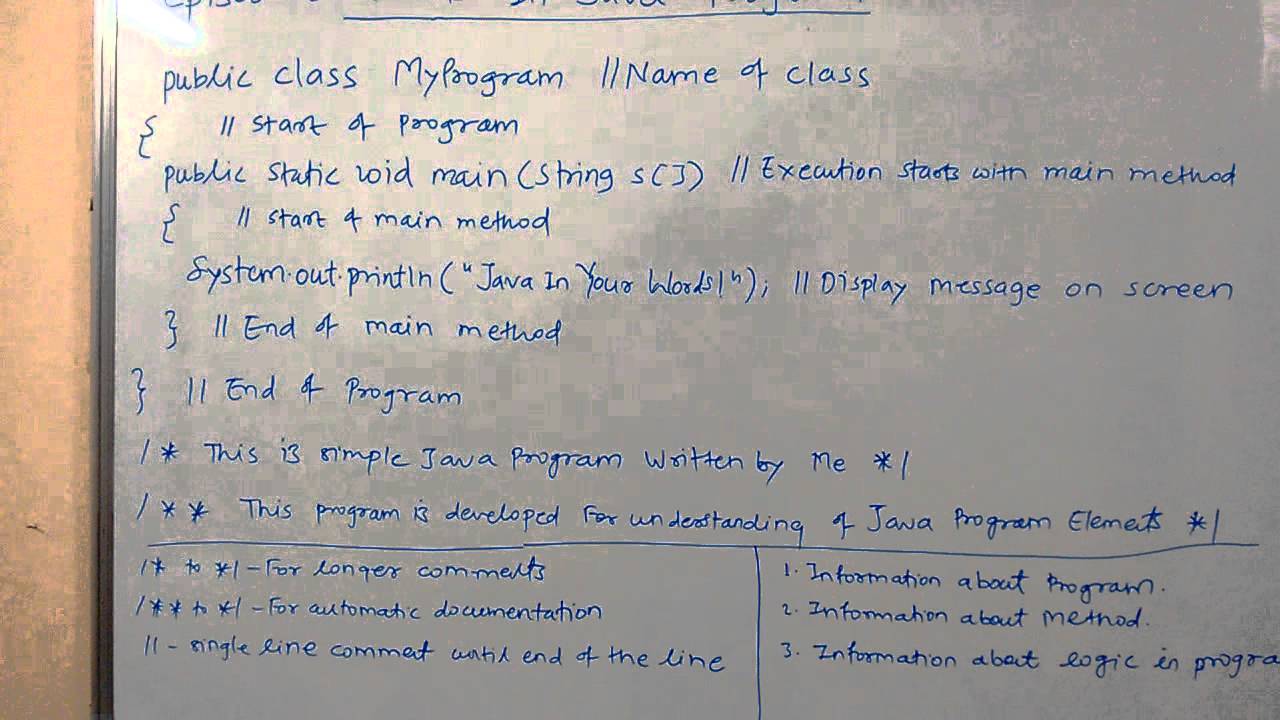 In Java Program
public class MyProgram //Name of class
{ // Start of Program
public static void main(String s[]) // Execution starts with main method
{ // Start of main method
System.out.println("Java In Your Words!"); // Display message on screen
} // End of main method
} // End of Program
/* This is simple Java Program Written by Me */
/** This program is developed For understanding of Java Program Elements */
/* to */ - For longer comments
/** to */ - For automatic documentation
// - single line comment until end of the line
1. Information about Program.
2. Information about method.
3. Information about logic in progra